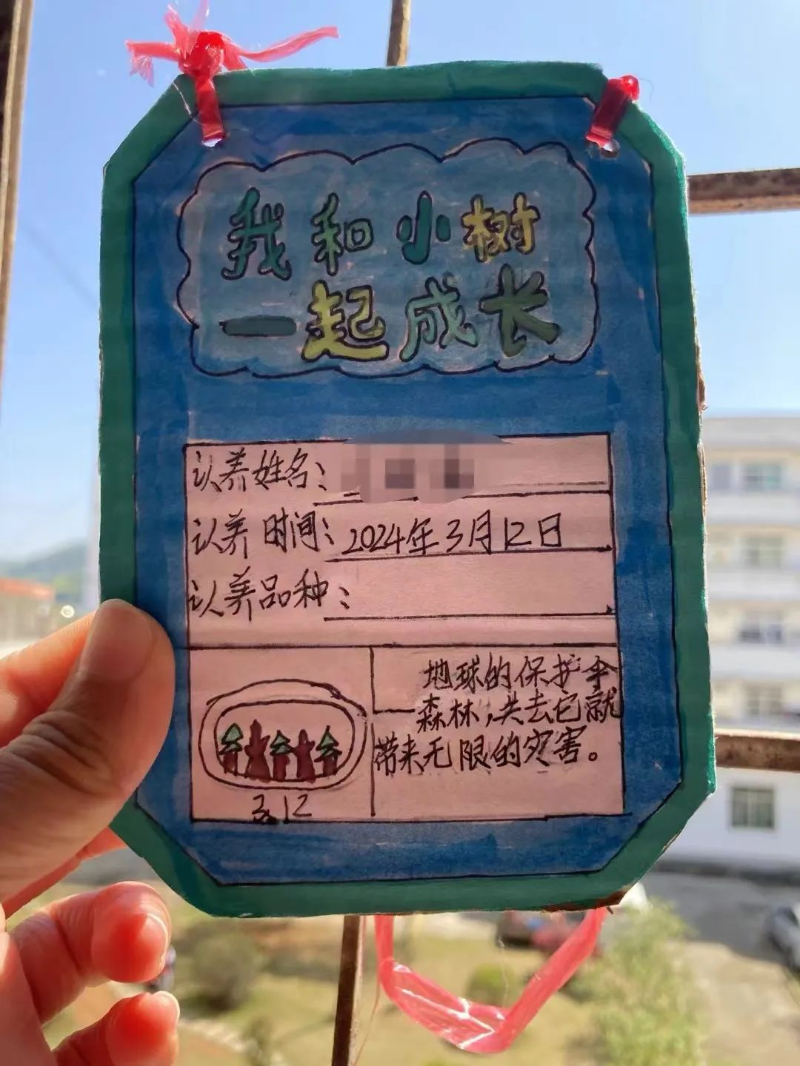 我和小树
一起成长
认养姓名：
认养时间：2024年3月12日
认养品种：
地球的保护伞
—森林，失去它就
带来无限的灾害。
3.12